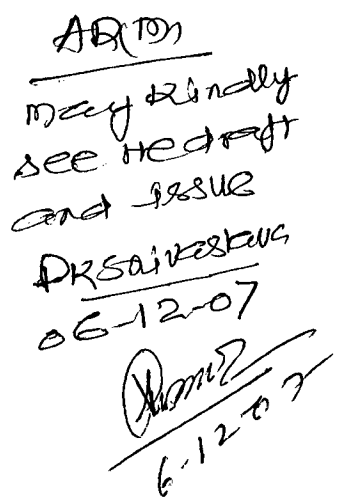 AD(TM)
may kindly
see the draft
and issue
PKSrivastava
06-12-07
6-12-07